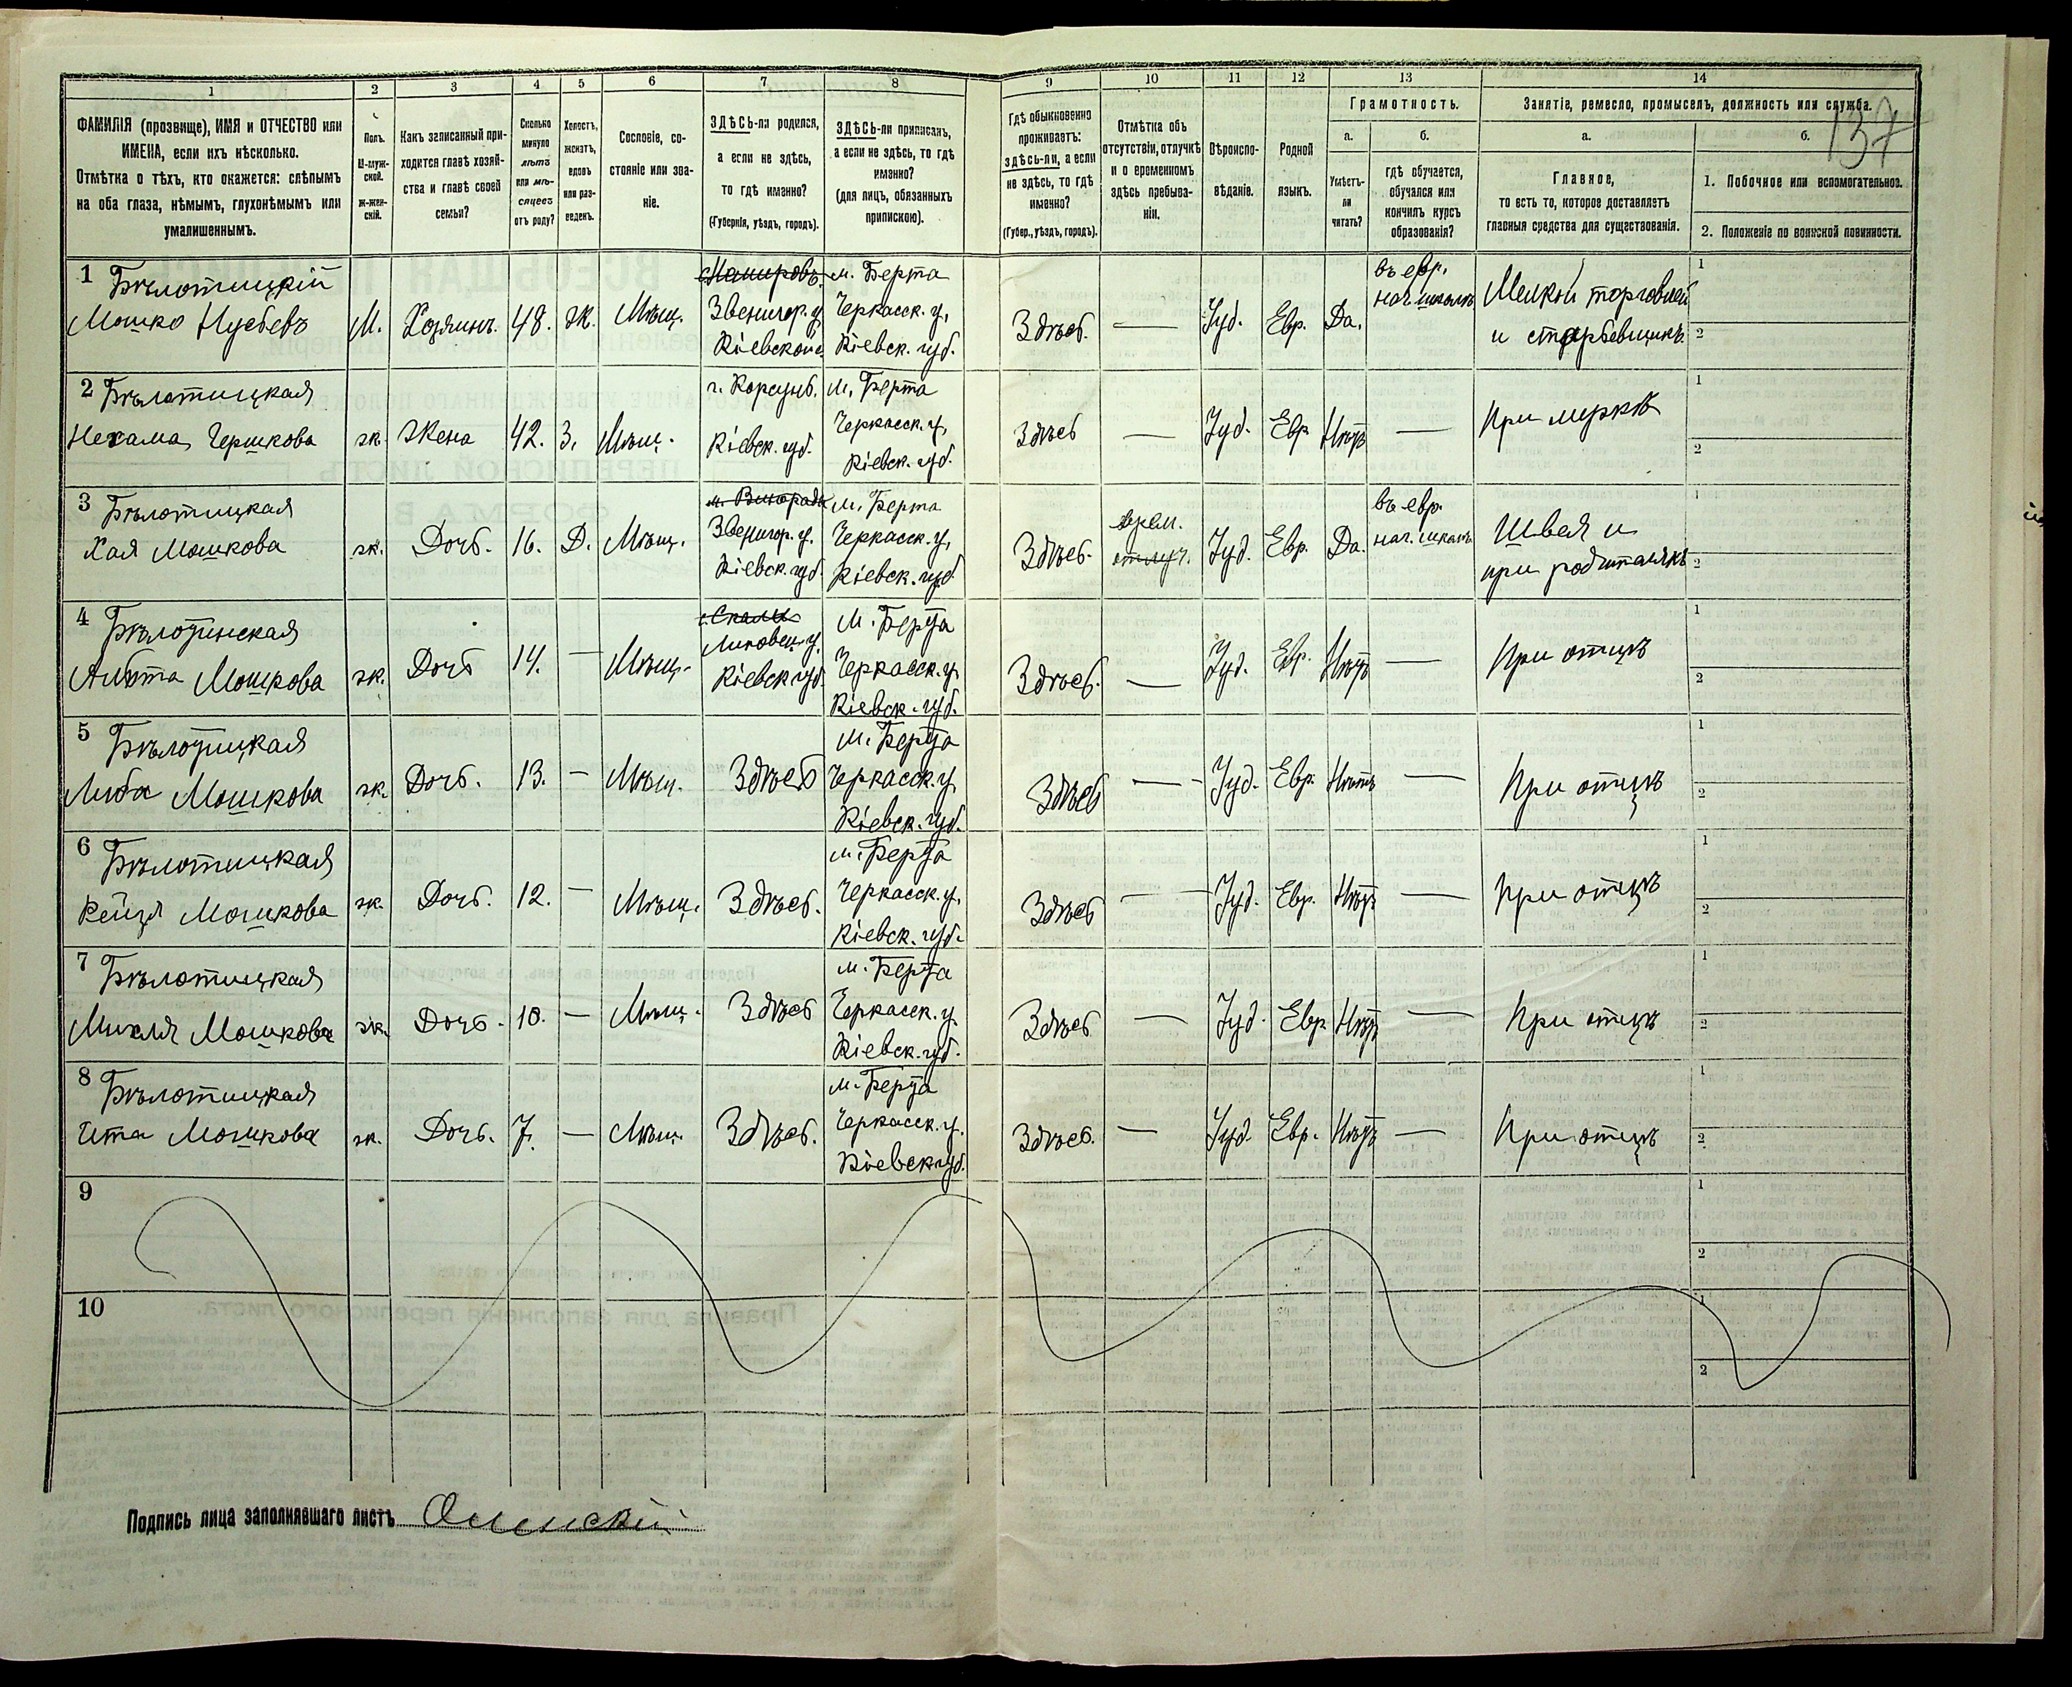 1 2 3 4 5 6 7 8 9 10 11 12 13 14
137
ФАМИЛІЯ (прозвище), ИМЯ и ОТЧЕСТВО или
ИМЕНА, если ихъ нѣсколько.
Отмѣтка о тѣхъ, кто окажется: слѣпымъ
на оба глаза, нѣмымъ, глухонѣмымъ или
умалишеннымъ.
Полъ.
М-муж-
ской.
ж-жен-
скій.
Какъ записанный при-
ходится главѣ хозяй-
ства и главѣ своей
семьи?
Сколько
минуло
лѣтъ
или мѣ-
сяцевъ
отъ роду?
Холостъ,
женатъ,
вдовъ
или раз-
веденъ.
Сословіе, со-
стояніе или зва-
ніе.
ЗДѢСЬ-ли родился,
а если не здѣсь,
то гдѣ именно?
(Губернія, уѣздъ, городъ).
ЗДѢСЬ-ли приписанъ,
а если не здѣсь, то гдѣ
именно?
(для лицъ, обязанныхъ
припискою).
Гдѣ обыкновенно
проживаетъ:
здѣсь-ли, а если
не здѣсь, то гдѣ
именно?
(Губер., уѣздъ, городъ).
Отмѣтка объ
отсутствіи, отлучкѣ
и о временномъ
здѣсь пребыва-
ніи.
Вѣроиспо-
вѣданіе.
Родной
языкъ.
Грамотность.
а.
Умѣетъ-
ли
читать?
б.
гдѣ обучается,
обучался или
кончилъ курсъ
образованія?
Занятіе, ремесло, промыселъ, должность или служба.
а.
Главное,
то есть то, которое доставляетъ
главныя средства для существованія.
б.
1. Побочное или вспомогательное.
2. Положеніе по воинской повинности.
1 Бѣлотицкій
Мошко Нусбевъ
М. Хозяинъ. 48. ж. Мѣщ.
Звенигор. у.
Кіевской г.
м. Берта
Черкасск. у,
Кіевск. губ.
Здѣсь. — Іуд. Евр. Да.
въ евр.
нач. школѣ
Мелкой торговлей
и старьевщикъ
1
2
2 Бѣлотицкая
Нехама Гершкова
ж. Жена 42. З. Мѣщ.
г. Корсунь.
Кіевск. губ.
м. Берта
Черкасск. у,
Кіевск. губ.
Здѣсь — Іуд. Евр Нѣтъ —
При мужѣ
1
2
3 Бѣлотицкая
Хая Мошкова
ж. Дочь. 16. Д. Мѣщ.
м. Виноградъ
Звенигор. у.
Кіевск. губ.
м. Берта
Черкасск. у,
Кіевск. губ.
Здѣсь.
врем.
отлуч.
Іуд. Евр. Да.
въ евр.
нач. школѣ
Швея и
при родителяхъ
1
2
4 Бѣлотинская
Мошкова
ж. Дочь 14. — Мѣщ.
Липовец. у.
Кіевск. губ.
М. Берта
Черкасск. у,
Кіевск. губ.
Здѣсь. — Іуд. Евр. Нѣтъ —
При отцѣ
1
2
5 Бѣлотицкая
Люба Мошкова
ж. Дочь. 13. — Мѣщ. Здѣсь
м. Берта
Черкасск. у,
Кіевск. губ.
Здѣсь — Іуд. Евр. Нѣтъ —
При отцѣ
1
2
6 Бѣлотицкая
Рейзя Мошкова
ж. Дочь. 12. — Мѣщ. Здѣсь.
м. Берта
Черкасск. у,
Кіевск. губ.
Здѣсь — Іуд. Евр. Нѣтъ —
При отцѣ
1
2
7 Бѣлотицкая
Михля Мошкова
ж. Дочь. 10. — Мѣщ. Здѣсь
м. Берта
Черкасск. у.
Кіевск. губ.
Здѣсь — Іуд. Евр Нѣтъ —
При отцѣ
1
2
8 Бѣлотицкая
Ита Мошкова
ж. Дочь. 7. — Мѣщ. Здѣсь.
м. Берта
Черкасск. у.
Кіевск. губ.
Здѣсь. — Іуд. Евр. Нѣтъ —
При отцѣ
1
2
9
1
2
10
1
2
Подпись лица заполнявшаго листъ